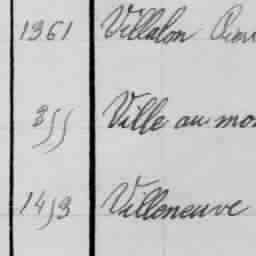 1361 Villalon
355 Ville au
1453 Villeneuve